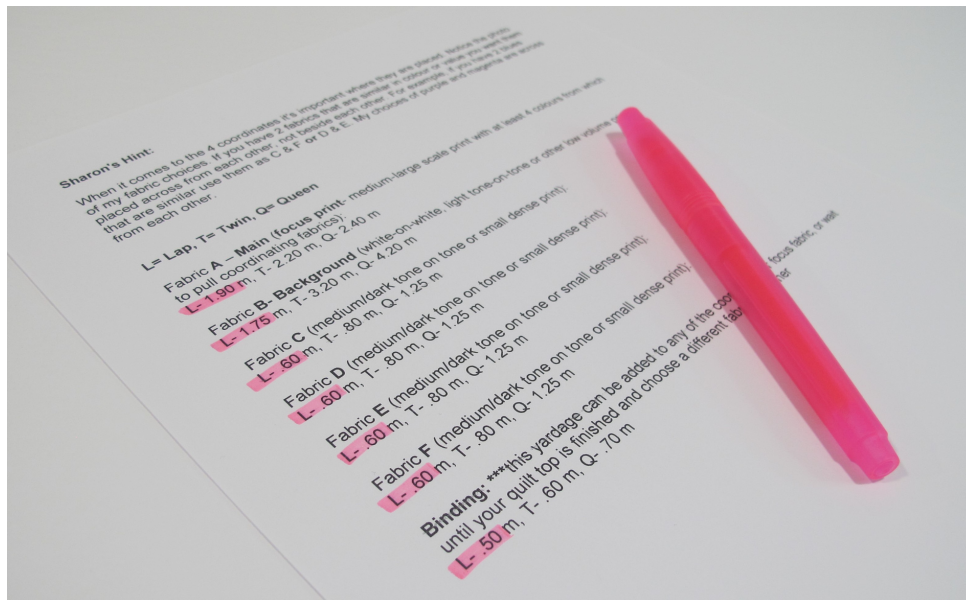 Sharon's Hint:
When it comes to the 4 coordinates it's important where they are placed. Notice the photo
of my fabric choices. If you have 2 fabrics that are similar in colour or value you want them
placed across from each other, not beside each other. For example, if you have 2 blues
that are similar use them as C & F or D & E. My choices of purple and magenta are across
from each other.
L= Lap, T= Twin, Q= Queen
Fabric A – Main (focus print- medium-large scale print with at least 4 colours from which
to pull coordinating fabrics):
L- 1.90 m, T- 2.20 m, Q- 2.40 m
Fabric B- Background (white-on-white, light tone-on-tone or other low volume
L- 1.75 m, T- 3.20 m, Q- 4.20 m
Fabric C (medium/dark tone on tone or small dense print):
L- .60 m, T- .80 m, Q- 1.25 m
Fabric D (medium/dark tone on tone or small dense print):
L- .60 m, T- .80 m, Q- 1.25 m
Fabric E (medium/dark tone on tone or small dense print):
L- .60 m, T- .80 m, Q- 1.25 m
Fabric F (medium/dark tone on tone or small dense print):
L- .60 m, T- .80 m, Q- 1.25 m
Binding: ***this yardage can be added to any of the focus fabric, or wait
until your quilt top is finished and choose a different
L- .50 m, T- .60 m, Q- .70 m